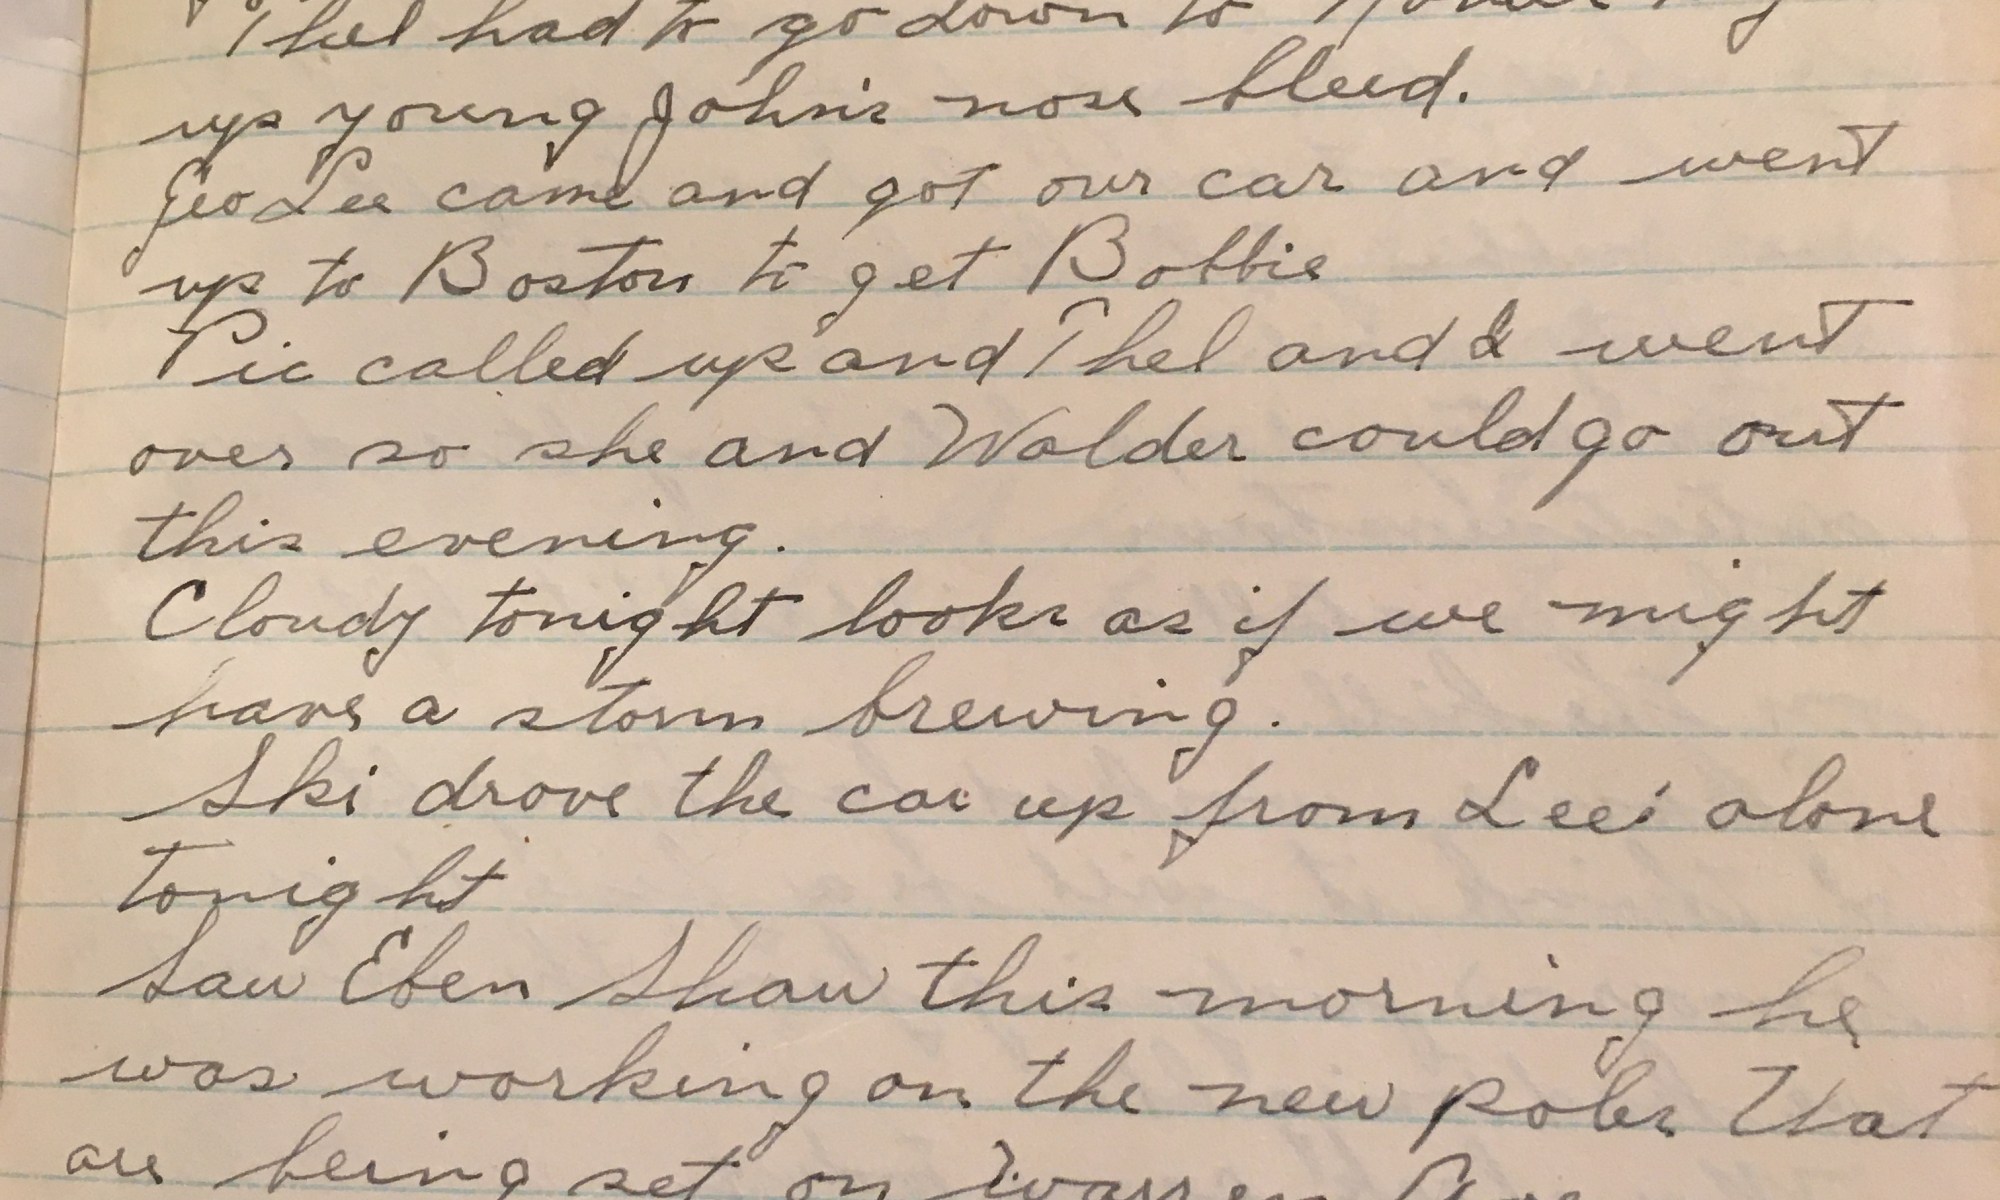 Thel had to go down to
up young John's nose bleed.
Geo Lee came and got our car and went
up to Boston to get Bobbie
Pic called up and Thel and I went
over so she and Walder could go out
this evening.
Cloudy tonight looks as if we might
have a storm brewing.
Ski drove the car up from Lees' alone
tonight
Saw Eben Shaw this morning he
was working on the new poles that
are being set on Warren Ave